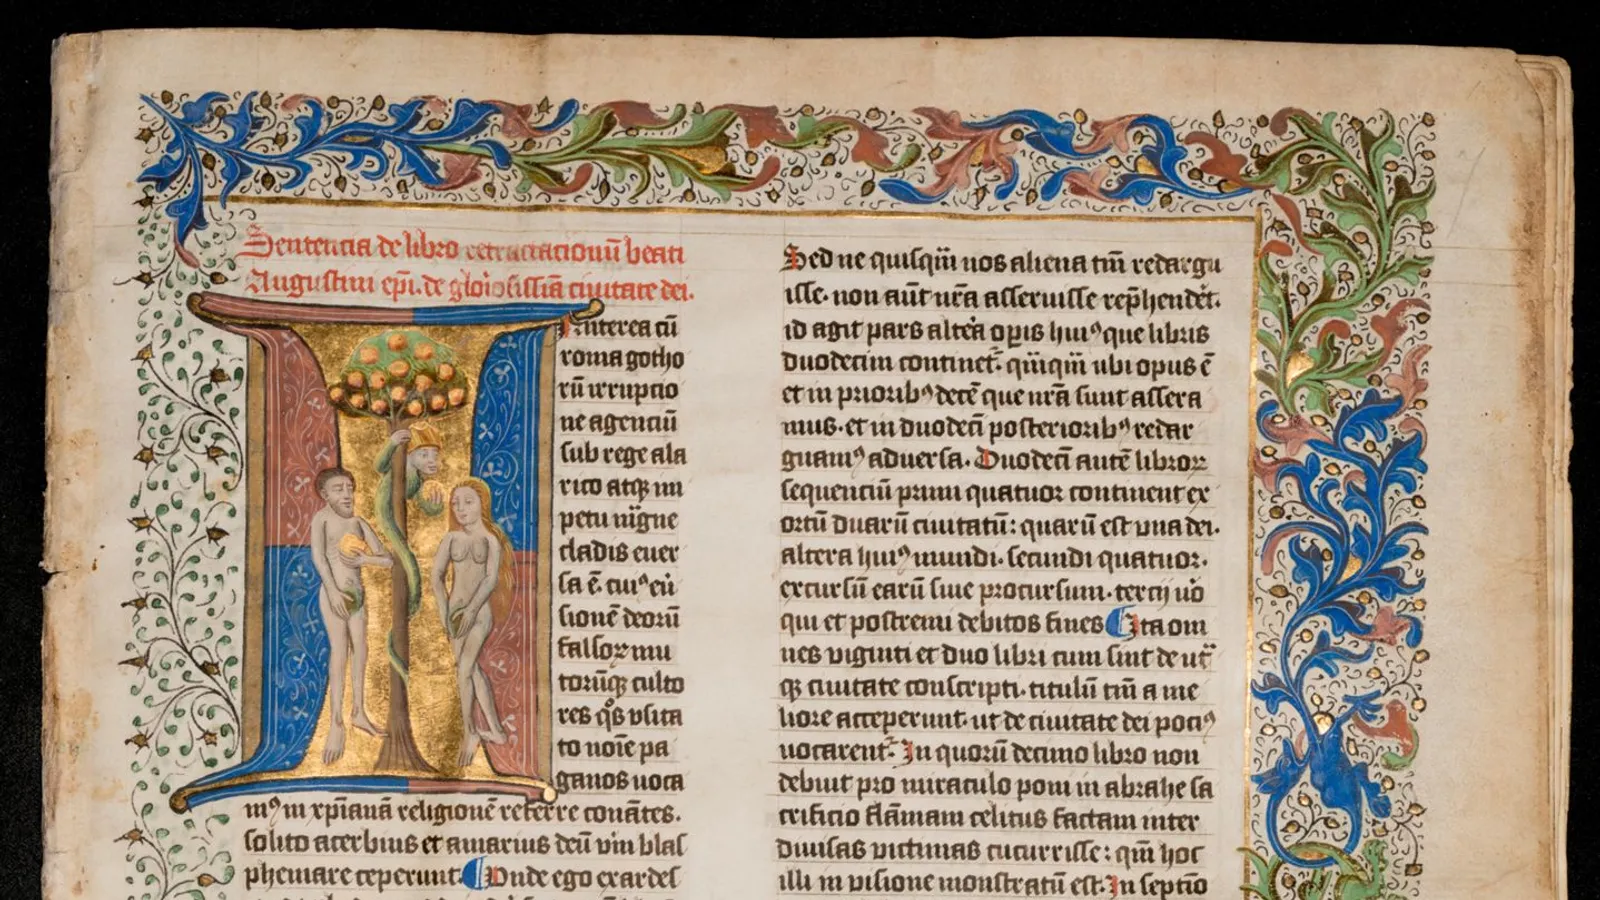 Sententia de libro retractacionū beati
Augustini ep̄i. de glo͛iosissīā ciuitate dei.
Interea cū
roma gotho
rū irruptio
ne agenciū
sub rege ala
rico atq̢ im
petu
cladis euer
sa ē. cuiꝰ eū
sionē deorū
falsoꝝ mu
torūq̢ culto
res q̊s vsita
to noīe pa
ganos uoca
mꝰ in xp̄ianā religionē referre conātes.
solito acerbius et amarius deū vm̄ blas
phemare ceperunt. Vnde ego exardes
Sed ne quisq̄m nos aliena tm̄ redargu
isse. non aūt nr̄a asseruisse rep̄hendet.
id agit pars altera opis huiꝰ que libris
duodecim continet̄. q̄mq̄m ubi opus ē
et in prioribꝰ decē que nr̄a sunt assera
mus. et in duodecī posterioribꝰ redar
guamꝰ aduersa. Duodecī autē libroꝝ
sequenciū primi quatuor continent ex
ortū duarū ciuitatū: quarū est vna dei.
altera huiꝰ mundi. secundi quatuor.
excursū earū siue procursum. tercij uō
qui et postremi debitos fines Ita om
nes viginti et duo libri cum sint de ut̄
q̢ ciuitate conscripti. titulū tm̄ a me
liore acceperunt. ut de ciuitate dei pociꝰ
uocarent̄. In quorū decimo libro non
debuit pro miraculo poni in abrahe sa
crificio flāmam celitus factam inter
diuisas victimas cucurrisse: qm̄ hoc
illi in visione monstratū est. In septīo